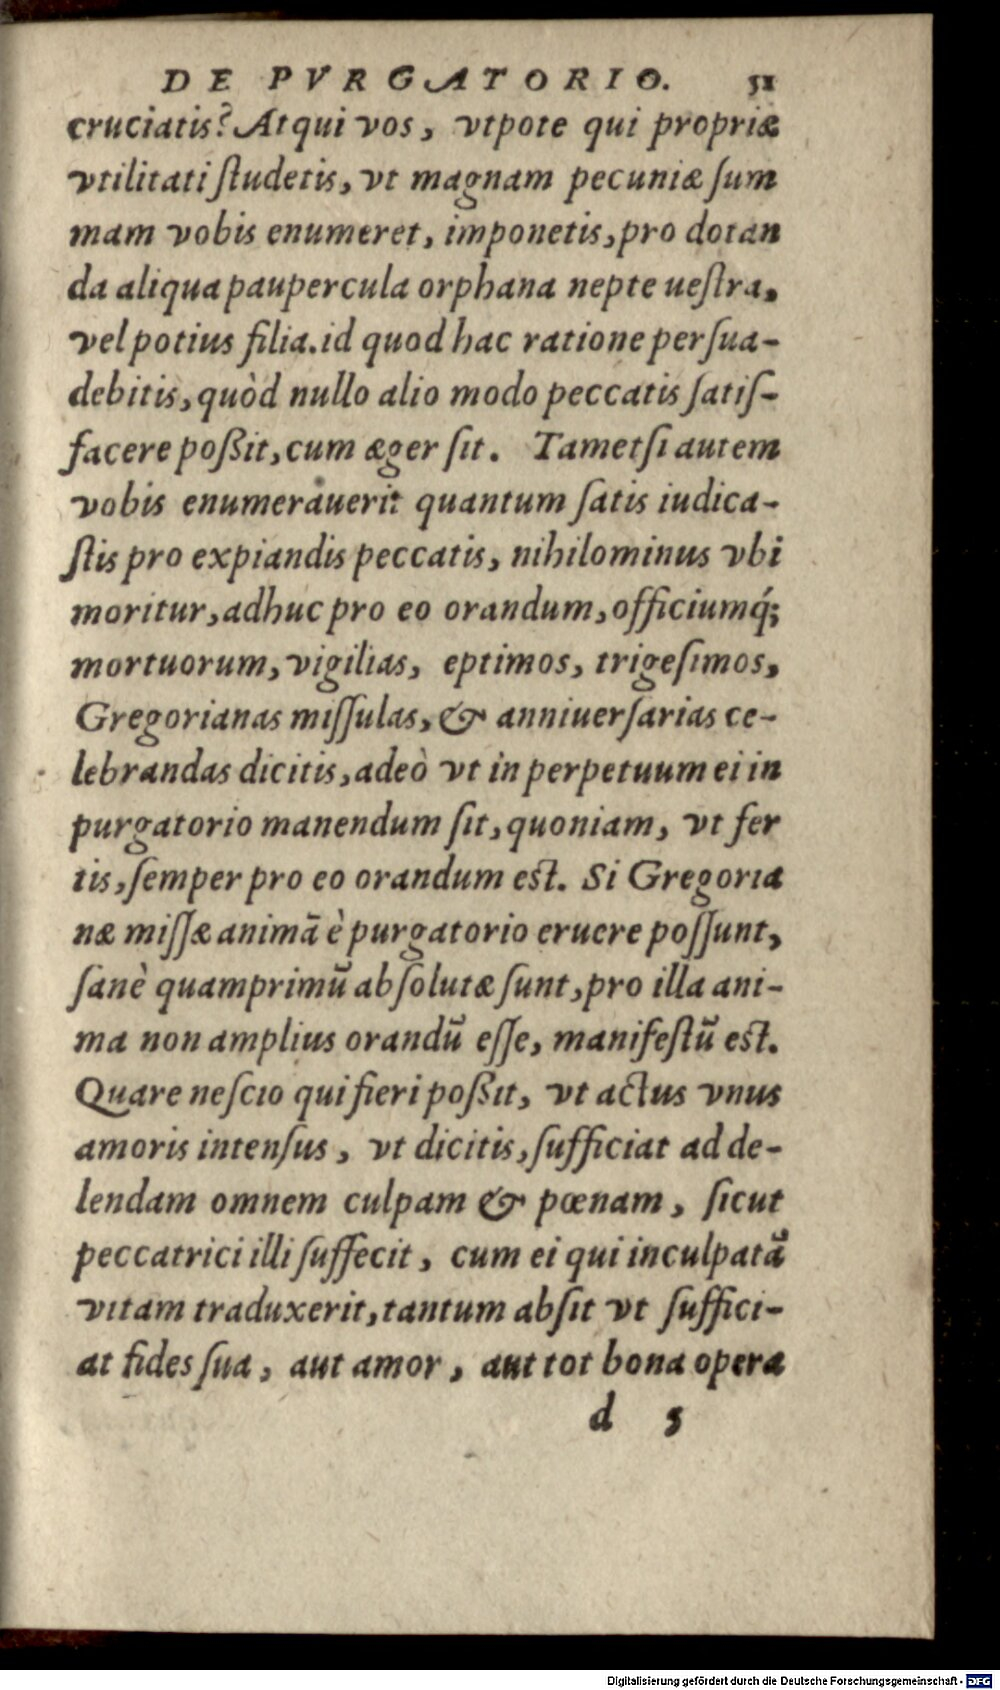 DE PVRGATORIO. 51
cruciatis? Atqui vos, vtpote qui propriæ
vtilitati ſtudetis, vt magnam pecuniæ ſum
mam vobis enumeret, imponetis, pro dotan
da aliqua paupercula orphana nepte ueſtra,
vel potius filia. id quod hac ratione perſua-
debitis, quòd nullo alio modo peccatis ſatiſ-
facere poßit, cum æger ſit. Tametſi autem
vobis enumerauerit quantum ſatis iudica-
ſtis pro expiandis peccatis, nihilominus vbi
moritur, adhuc pro eo orandum, officiumq́;
mortuorum, vigilias, eptimos, trigeſimos,
Gregorianas miſſulas, & anniuerſarias ce-
lebrandas dicitis, adeò vt in perpetuum ei in
purgatorio manendum ſit, quoniam, vt fer
tis, ſemper pro eo orandum eſt. Si Gregoria
næ miſſæ animā è purgatorio eruere poſſunt,
ſanè quamprimū abſolutæ ſunt, pro illa ani-
ma non amplius orandū eſſe, manifeſtū eſt.
Quare neſcio qui fieri poßit, vt actus vnus
amoris intenſus, vt dicitis, ſufficiat ad de-
lendam omnem culpam & pœnam, ſicut
peccatrici illi ſuffecit, cum ei qui inculpatā
vitam traduxerit, tantum abſit vt ſuffici-
at fides ſua, aut amor, aut tot bona opera
d 5
Digitalisierung gefördert durch die Deutsche Forschungsgemeinschaft - DFG